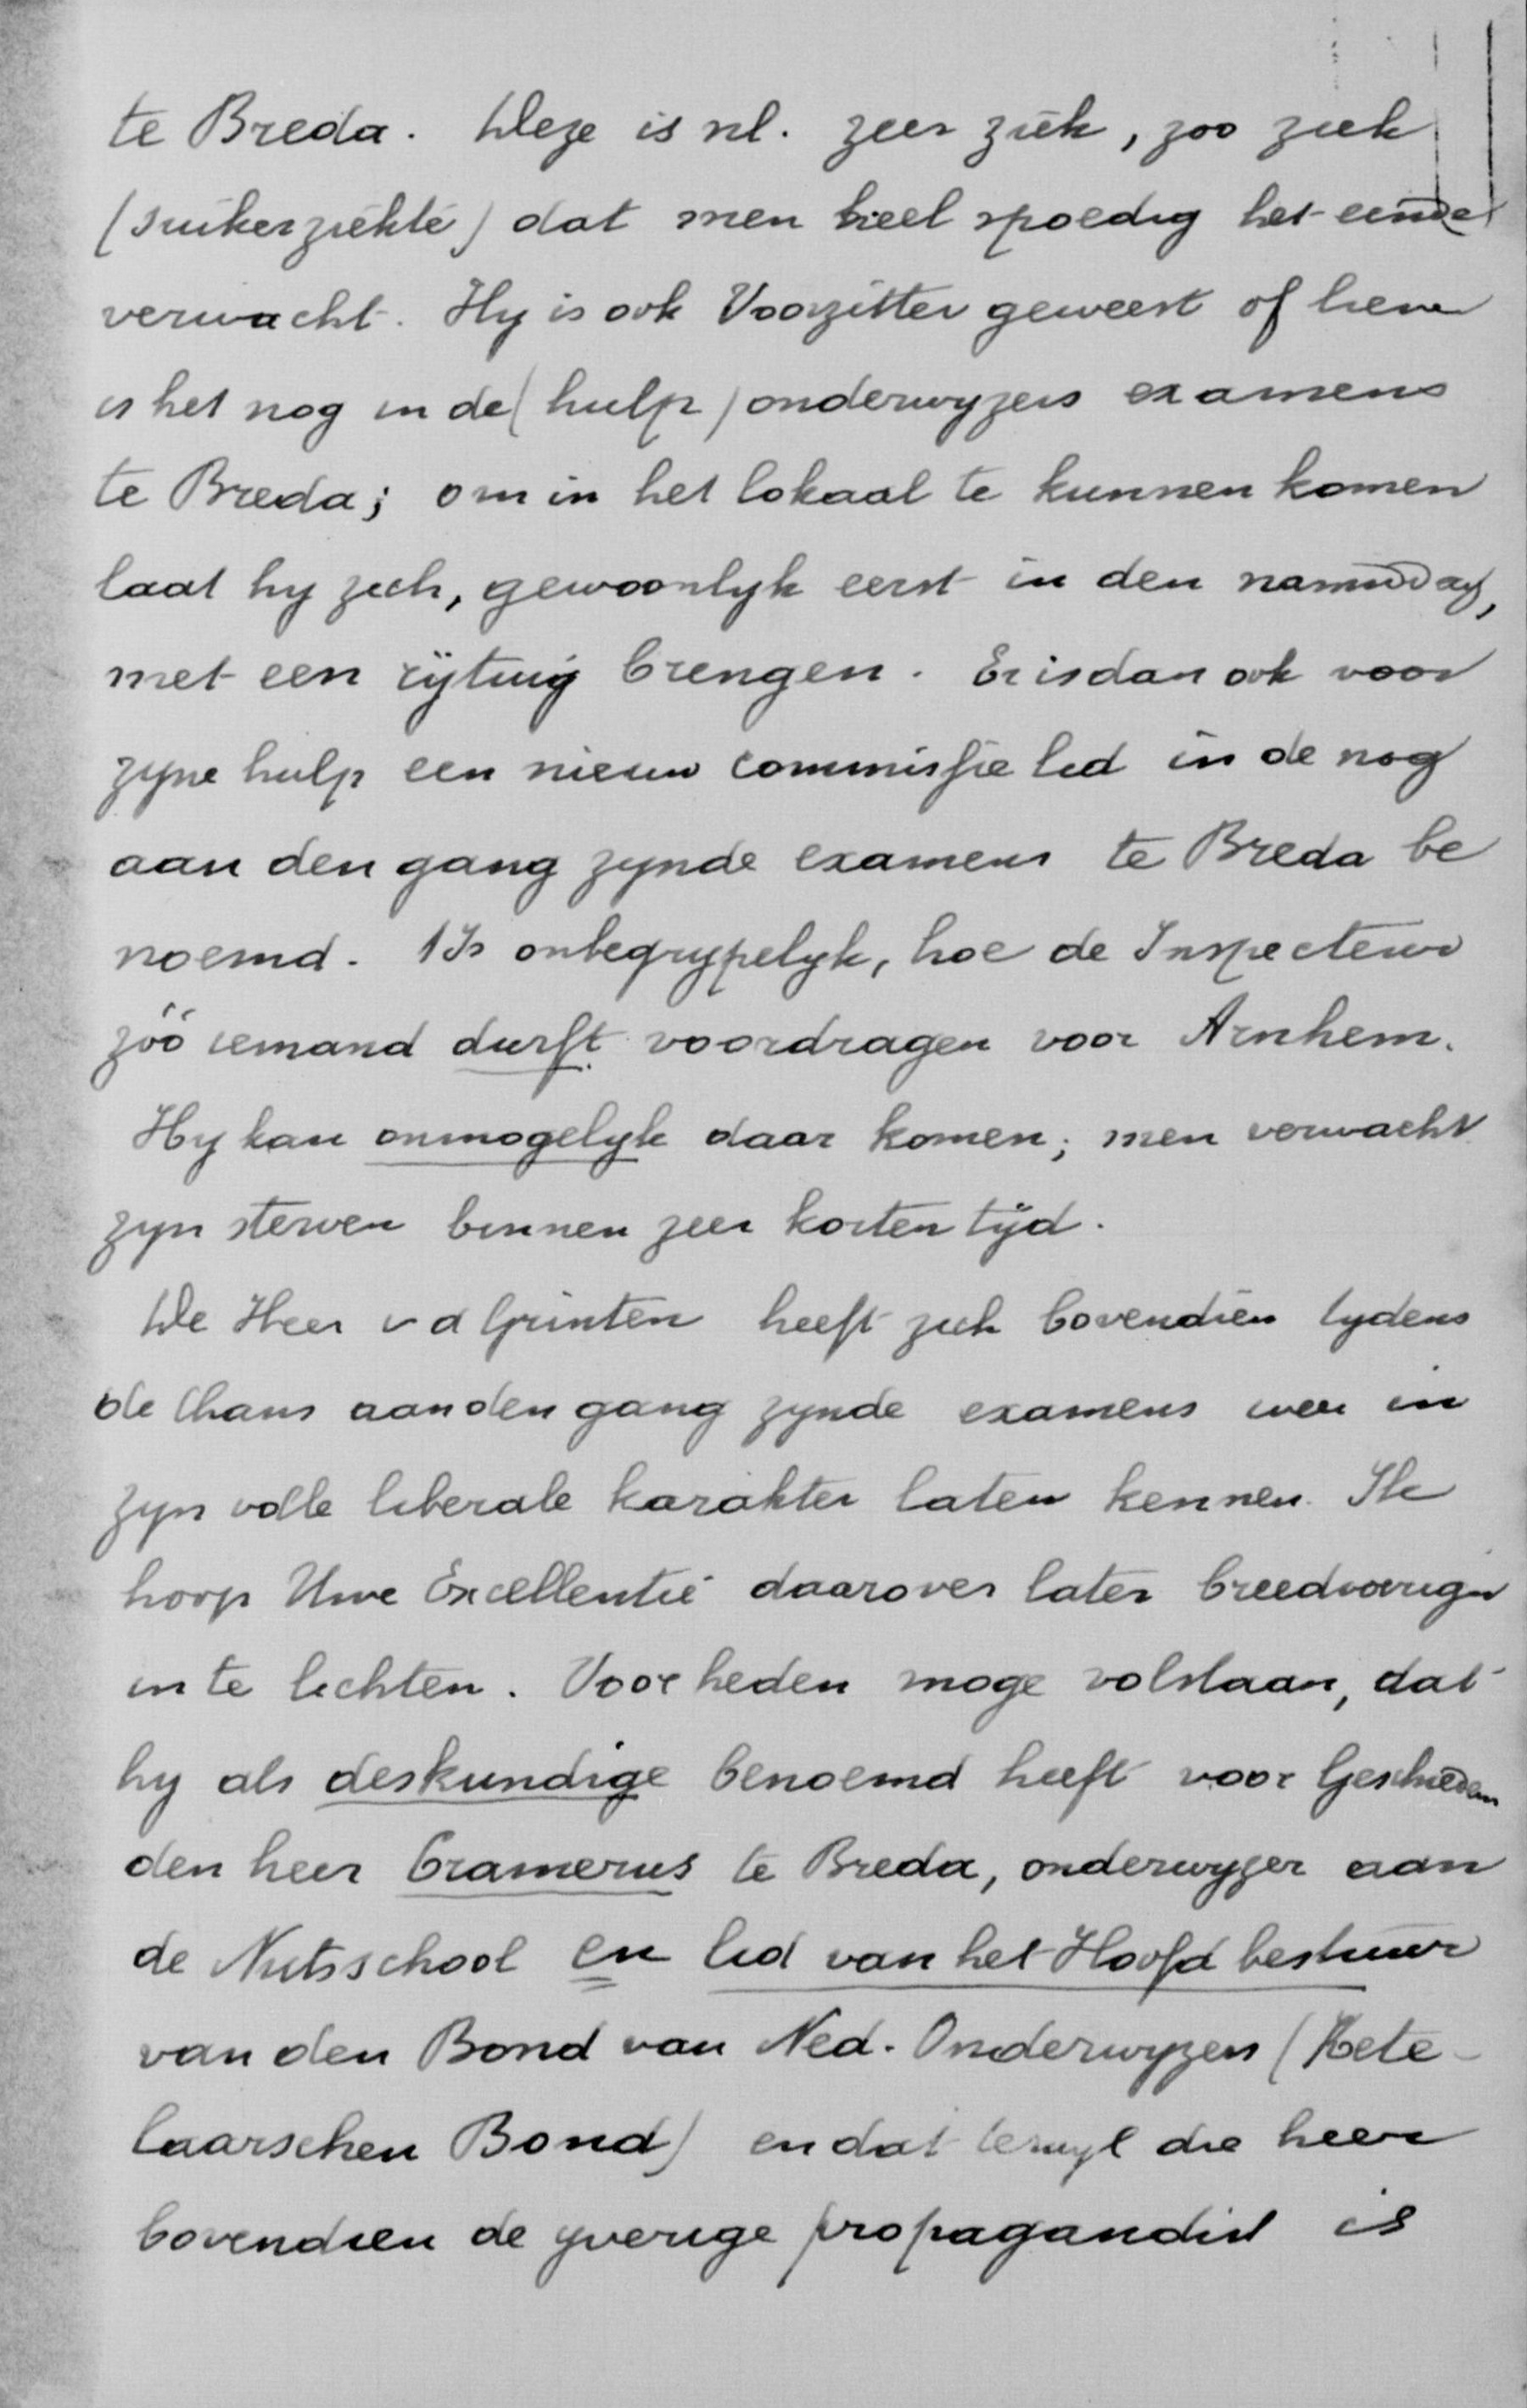 te Breda. Deze is nl. zeer ziek, zoo ziek
(suikerziekte) dat men heel spoedig het einde
verwacht. Hy is ook Voorzitter geweest of liever
is het nog in de (hulp) onderwyzers examens
te Breda; om in het lokaal te kunnen komen
laat hy zich, gewoonlyk eerst in den namiddag,
met een rijtuig brengen. Er is dan ook voor
zyne hulp een nieuw commissie lid in de nog
aan den gang zynde examens te Breda be
noemd. 't Is onbegrypelyk, hoe de Inspecteur
zóó iemand durft voordragen voor Arnhem.
Hy kan onmogelyk daar komen; men verwacht
zyn sterven binnen zeer korten tijd.
De Heer v d Grinten heeft zich bovendien tydens
de thans aan den gang zynde examens weer in
zyn volle liberale karakter laten kennen. Ik
hoop Uwe Excellentie daarover later breedvoeriger
in te lichten. Voor heden moge volstaan, dat
hy als deskundige benoemd heeft voor Geschieden
den heer Cramerus te Breda, onderwyzer aan
de Nutsschool en lid van het Hoofd bestuur
van den Bond van Ned. Onderwyzers (Kete-
laarschen Bond) en dat terwyl die heer
bovendien de yverige propagandist is